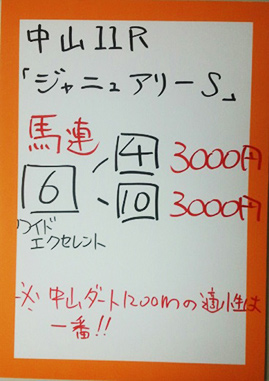 中山11R
「ジャニュアリーS」
馬連
6 4 3000円
、10 3000円
ワイド
エクセレント
※中山ダート1200mの適性は
一番!!